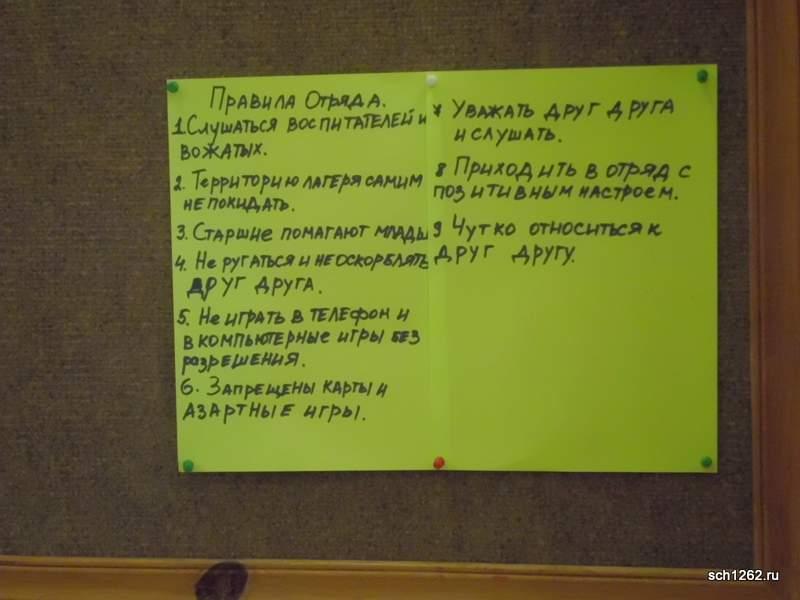 Правила Отряда.
1. Слушаться воспитателей и
вожатых.
2. Территорию лагеря самим
не покидать.
3. Старшие помогают млады
4. Не ругаться и не оскорблять
друг друга.
5. Не играть в телефон и
в компьютерные игры без
разрешения.
6. Запрещены карты и
азартные игры.
7 Уважать друг друга
и слушать.
8 Приходить в отряд с
позитивным настроем.
9 Чутко относиться к
друг другу.
sch1262.ru